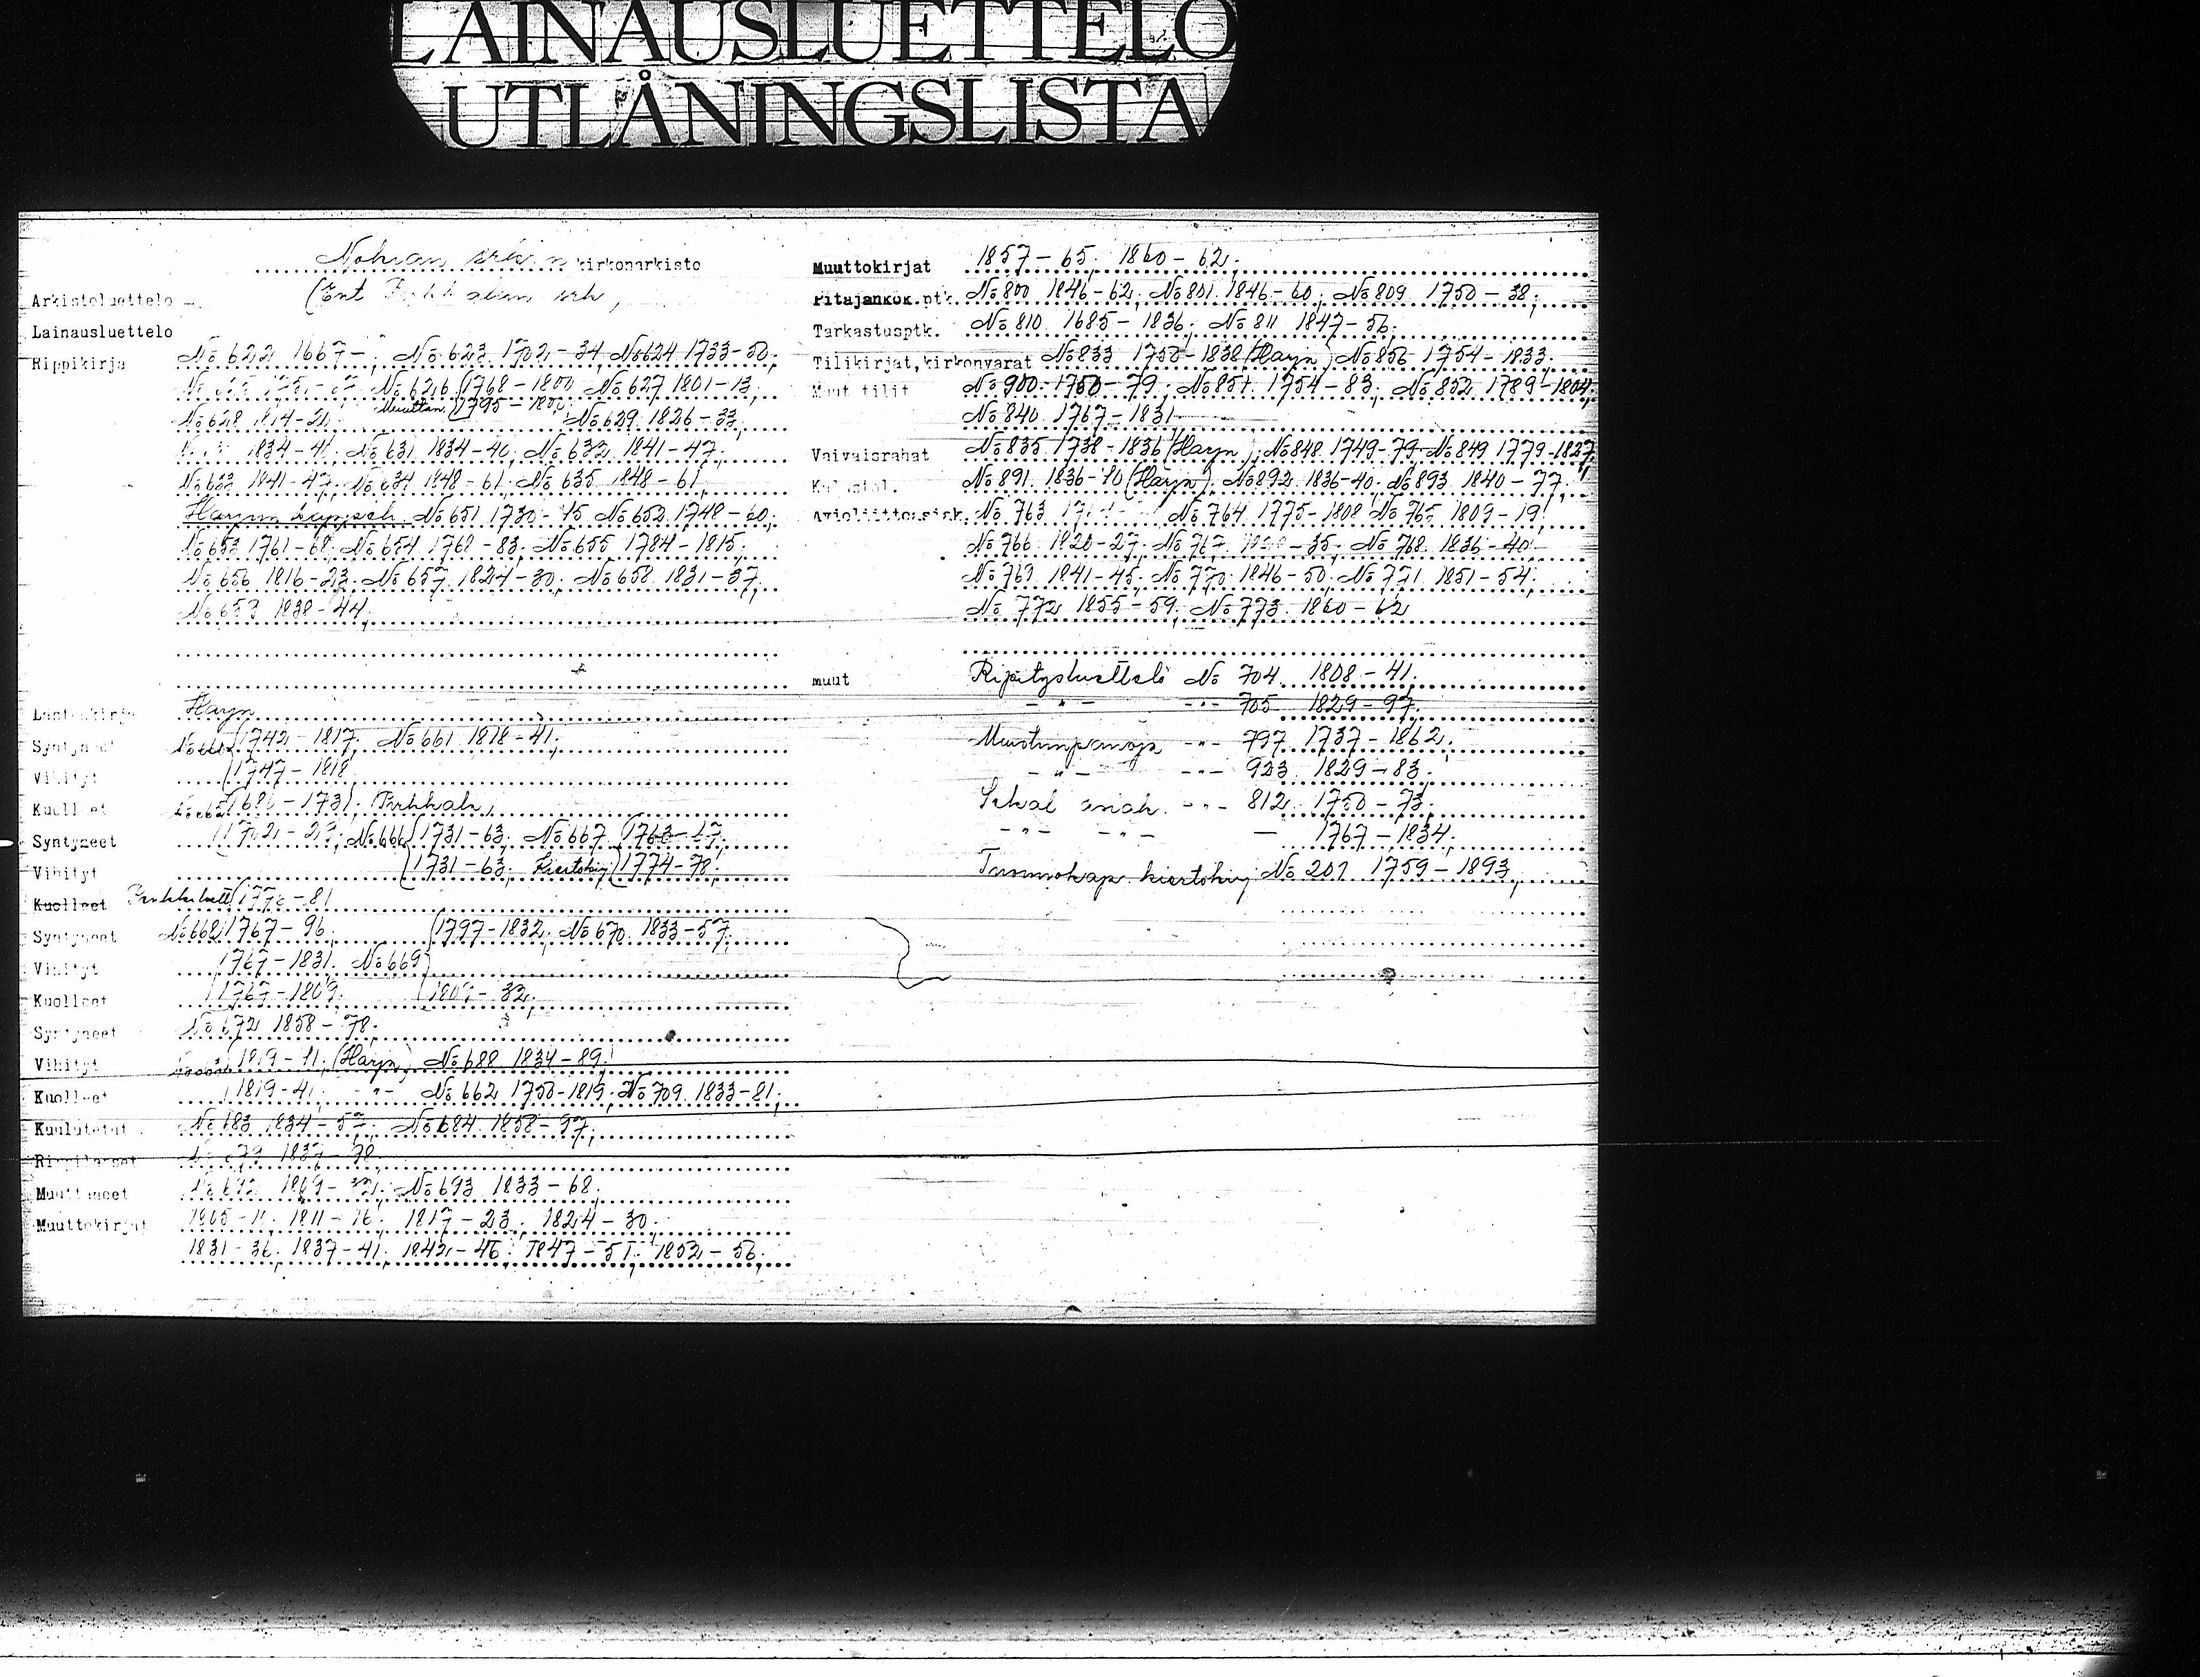 LAINAUSLUETTELO
UTLÅNINGSLISTA
Nokian srk:n kirkonarkisto
Arkistoluettelo (Ent Pirkkalan srk,
Lainausluettelo
Rippikirja No 622 1667-; No 623 1702-34, No 624 1733-50.
No 626 (1768-1800 No 627 1801-13;
Muuttan. (1795-1800; No 629 1826-33;
No 628 1814-
1834-41; No 631 1834-40; No 632 1841-47;
No 633 1841-47; No 634 1848-61; No 635 1848-61;
Harjun No 651 1730-45 No 652 1748-60;
No 653 1761-68; No 654 1768-83; No 655 1784-1815;
No 656 1816-23; No 657 1824-30; No 658 1831-37;
1838-44;
Lastenkirja Harju
Syntyneet (1742-1817; No 661 1818-41;
Vihityt (1747-1818
Kuolleet -1731; (Pirkkala,
Syntyneet No 666 (1731-63; No 667 (1763-
Vihityt (1731-63; Kiertokirj (1774-78;
Kuolleet -81
Syntyneet No 668 1767-96; (1797-1832; No 670 1833-57;
Vihityt 1767-1831; No 669
Kuolleet (1767-1809; -32;
Syntyneet No 672 1858-78;
Vihityt (1819-41; (Harju) No 688 1834-89;
Kuolleet (1819-41; -"- No 662 1750-1819; No 709 1833-81;
Kuulutetut No 683 1834-57; No 684 1858-97;
Rippilapset 1837-70
Muuttaneet No 693 1833-68
Muuttokirjat 1805-11; 1811-16; 1817-23; 1824-30;
1831-36; 1837-41; 1842-46; 1847-51; 1852-56;
Muuttokirjat 1857-65; 1860-62;
Pitäjänkok.ptk. No 800 1846-62; No 801 1846-60; No 809 1750-38;
Tarkastusptk. No 810 1685-1836; No 811 1847-56;
Tilikirjat, kirkonvarat No 833 1750-1838 (Harju) No 856 1754-1833;
Muut tilit No 900 1750-79; No 857 1754-83; No 852 1789-1804;
No 840 1767-1831
Vaivaisrahat No 835 1738-1836 (Harju); No 848 1749-79 No 849 1779-1827
No 891 1836-40 (Harju); No 892 1836-40; No 893 1840-77;
No 763 No 764 1775-1808 No 765 1809-19;
No 766 1820-27; No 767 -35; No 768 1836-40
No 769 1841-45; No 770 1846-50; No 771 1851-54;
No 772 1855-59; No 773 1860-62
muut Ripitysluettelo No 704 1808-41;
-"- -"- 705 1829-97;
Muistiinpanoja -"- 797 1737-1862;
-"- -"- 923 1829-83;
Sekal asiak. -"- 812 1750-73;
-"- -"- - 1767-1834;
Tuomiokap. kiertokirj No 201 1759-1893,